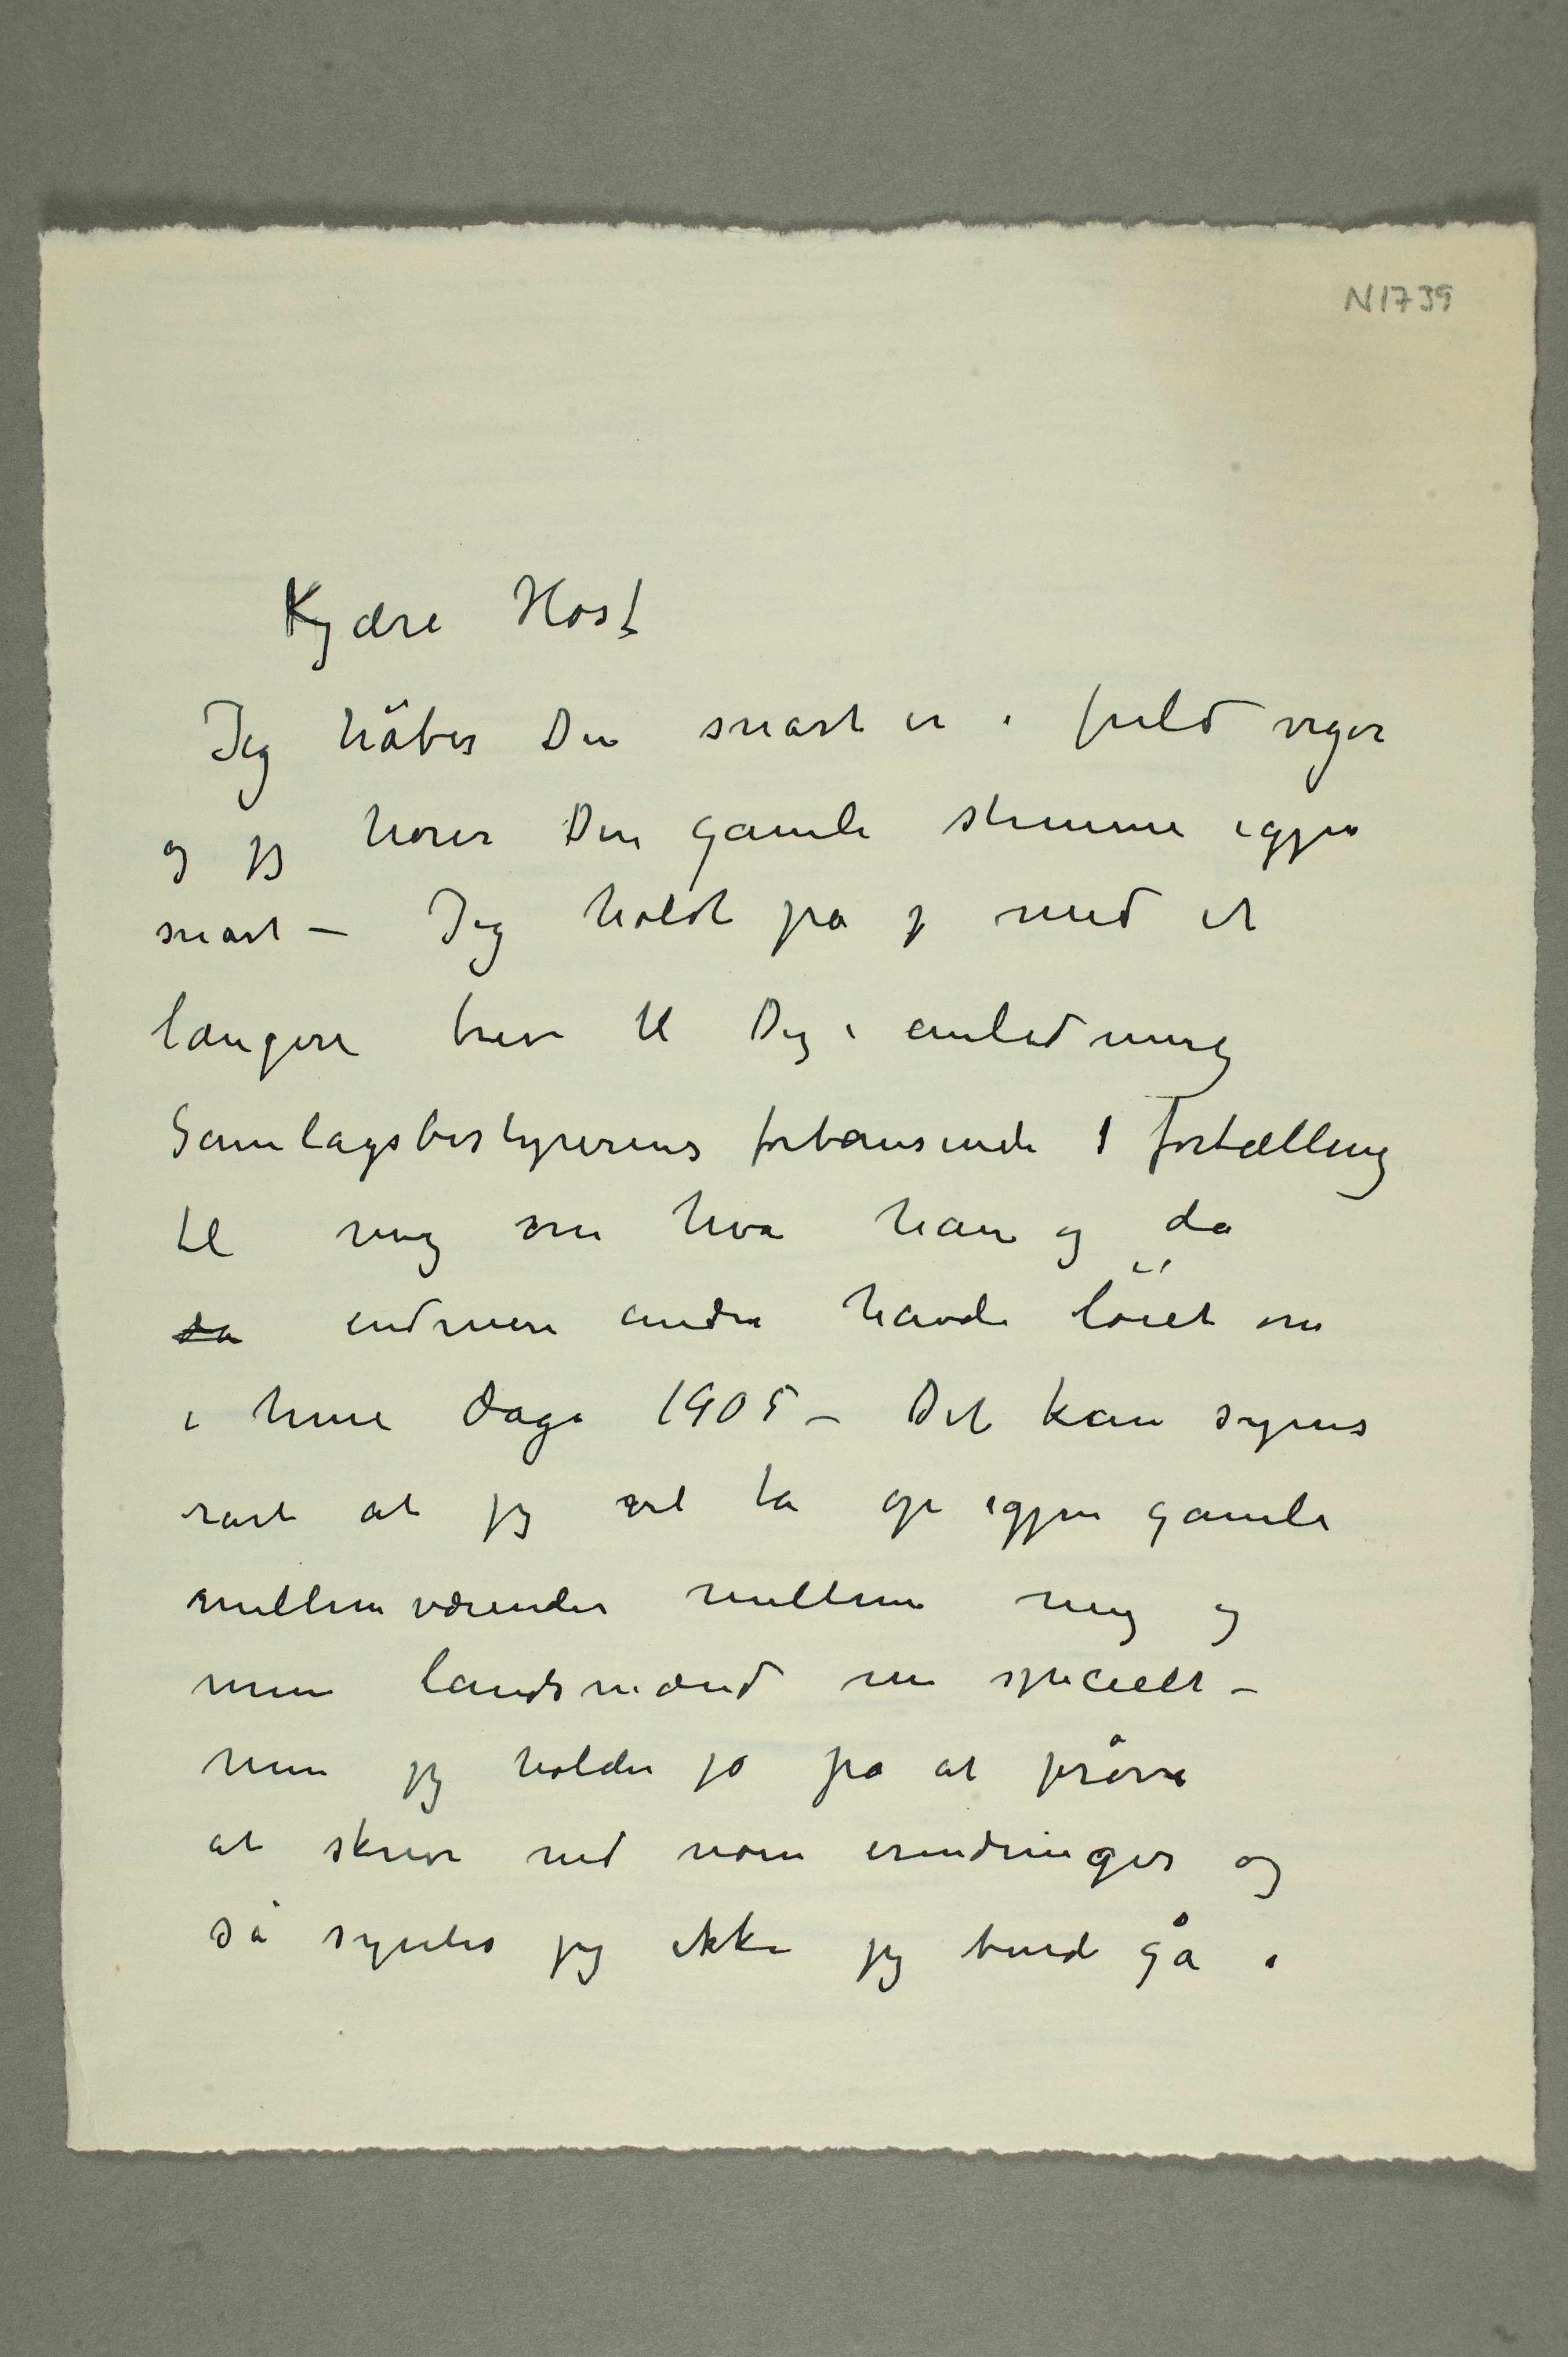 N1739
Kjære Høst
Jeg håber Du snart er i fuld vigør
og jeg hører Din gamle stemme igjen
snart – Jeg holdt på j med et
længere brev til Dig i anledning
Samlagsbestyrerens forbausende 1 fortælling
til mig om hva han og da
da endmere andre havde løiet om
i hine dage 1905 – Det kan synes
rart at jeg vil ta op igjen gamle
mellemværender mellem mig og
mine landsmænd nu specielt –
men jeg holder jo på at prøve
at skrive ned noen erindringer og
så syntes jeg ikke jeg burde gå i